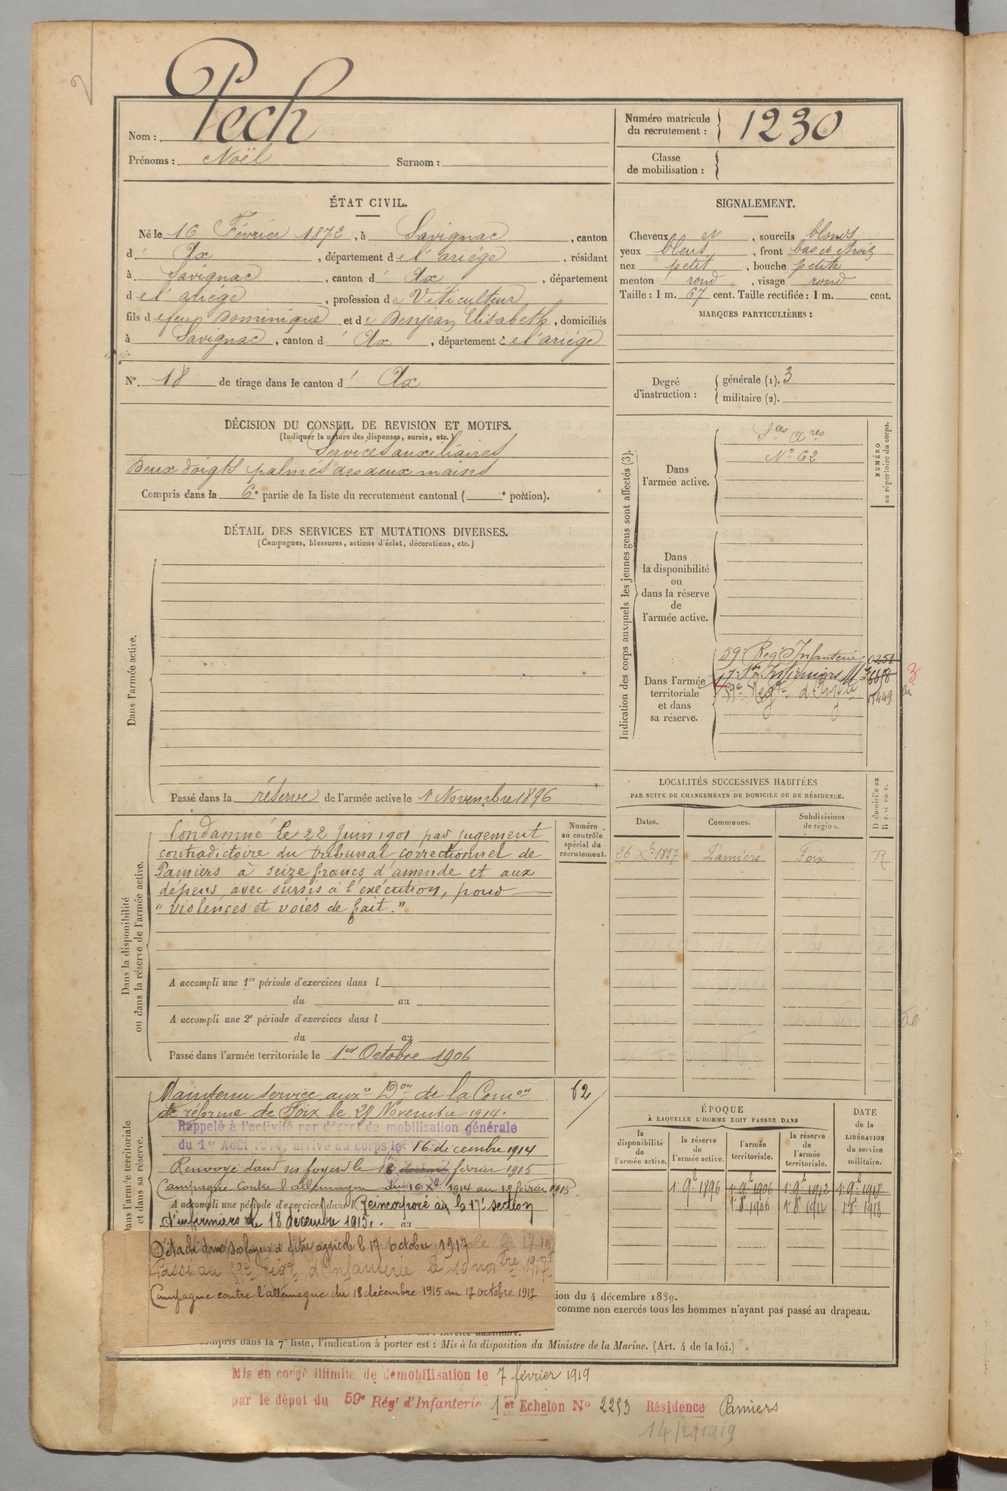 Pech
Nom :
Prénoms : Noël Surnom :
Numéro matricule du recrutement : 1230
Classe de mobilisation :
ÉTAT CIVIL.
Né le 16 Février 1872, à Savignac, canton
d' Ax, département de l'ariége, résidant
à Savignac, canton d' Ax, département
de l'ariége, profession de Viticulteur
fils de feu Dominique et de Benjean Elisabeth, domiciliés
à Savignac, canton d' Ax, département de l'ariége
N° 18 de tirage dans le canton d' Ax
SIGNALEMENT.
Cheveux et, sourcils blonds
yeux bleus, front bas et étroit
nez petit, bouche petite
menton rond, visage rond
Taille : 1 m. 67 cent. Taille rectifiée : 1 m. cent.
MARQUES PARTICULIÈRES :
Degré d'instruction : générale (1). 3
militaire (2).
DÉCISION DU CONSEIL DE REVISION ET MOTIFS.
(Indiquer la nature des dispenses, sursis, etc.)
Services auxiliaires
Deux doigts palmés des deux mains
Compris dans la 6e partie de la liste du recrutement cantonal ( e portion).
DÉTAIL DES SERVICES ET MUTATIONS DIVERSES.
(Campagnes, blessures, actions d'éclat, décorations, etc.)
Dans l'armée active.
Passé dans la réserve de l'armée active le 1 Novembre 1896
Indication des corps auxquels les jeunes gens sont affectés (3).
NUMÉRO au répertoire du corps.
Dans l'armée active.
Ses Ares
N° 62
Dans la disponibilité ou dans la réserve de l'armée active.
Dans l'armée territoriale et dans sa réserve.
59e Reg. Infanterie
17e Son Infirmiers
59e Regt d'Infrie
Dans la disponibilité ou dans la réserve de l'armée active.
Condamné le 22 Juin 1901 par jugement
contradictoire du tribunal correctionnel de
Pamiers à seize francs d'amende et aux
dépens, avec sursis à l'exécution, pour
"violences et voies de fait."
Numéro au contrôle spécial du recrutement.
62
A accompli une 1re période d'exercices dans l
du au
A accompli une 2e période d'exercices dans l
du au
Passé dans l'armée territoriale le 1er Octobre 1906
LOCALITÉS SUCCESSIVES HABITÉES
PAR SUITE DE CHANGEMENTS DE DOMICILE OU DE RÉSIDENCE.
Dates. Communes. Subdivisions de région.
26 Xbre 1897 Pamiers Foix R
Dans l'armée territoriale et dans sa réserve.
Maintenu service auxre Don de la Comon
de réforme de Foix le 27 Novembre 1914.
Rappelé à l'activité par décret de mobilisation générale
du 1er Août 1914, arrivé au corps le 16 decembre 1914
Renvoyé dans ses foyers le 18 février 1915
Campagne contre l'allemagne du 16 Xbre 1914 au 18 février 1915
A accompli une période d'exercices dans l Réincorporé à la 17e section
d'infirmiers le 18 décembre 1915. au
Détaché dans ses foyers d titre agricole le 17 octobre 1917
Passé au 59e Regt d'Infanterie le
Campagne contre l'allemagne du 18 decembre 1915 au 17 octobre 1917
ÉPOQUE
À LAQUELLE L'HOMME DOIT PASSER DANS
la disponibilité de l'armée active. la réserve de l'armée active. l'armée territoriale. la réserve de l'armée territoriale.
DATE de la LIBÉRATION du service militaire.
1 9bre 1896 1 9bre 1906 1 9bre 1912 1 9bre 1918
1 8bre 1906 1 8bre 1912 1 8bre 1918
ion du 4 décembre 1889.
comme non exercés tous les hommes n'ayant pas passé au drapeau.
compris dans la 7e liste, l'indication à porter est : Mis à la disposition du Ministre de la Marine. (Art. 4 de la loi.)
Mis en congé illimité de démobilisation le 7 février 1919
par le dépot du 59e Régt d'Infanterie 1er Echelon N° 2253 Résidence Pamiers